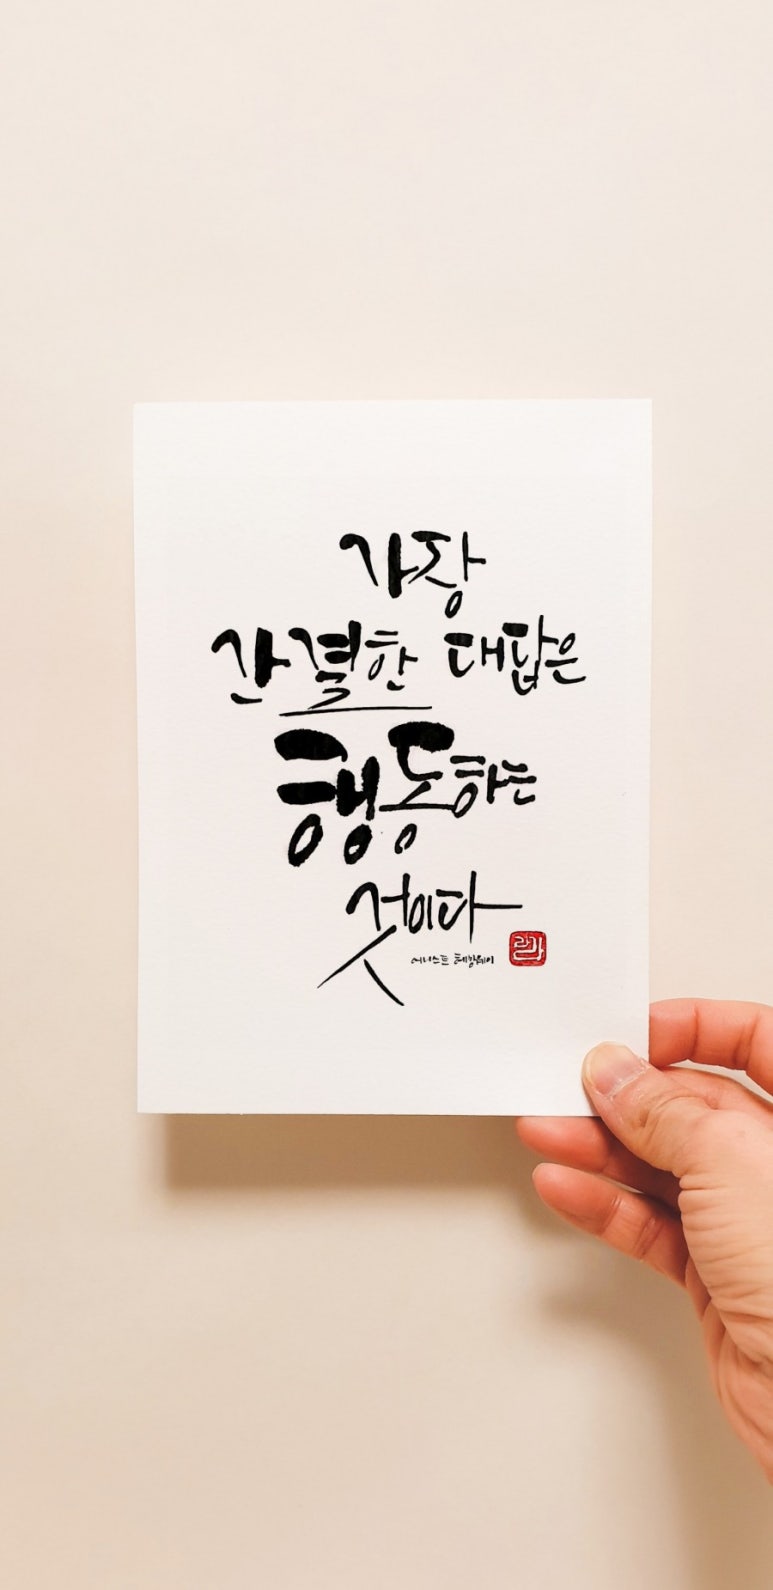 가장
간결한 대답은
행동하는
것이다
어니스트 헤밍웨이